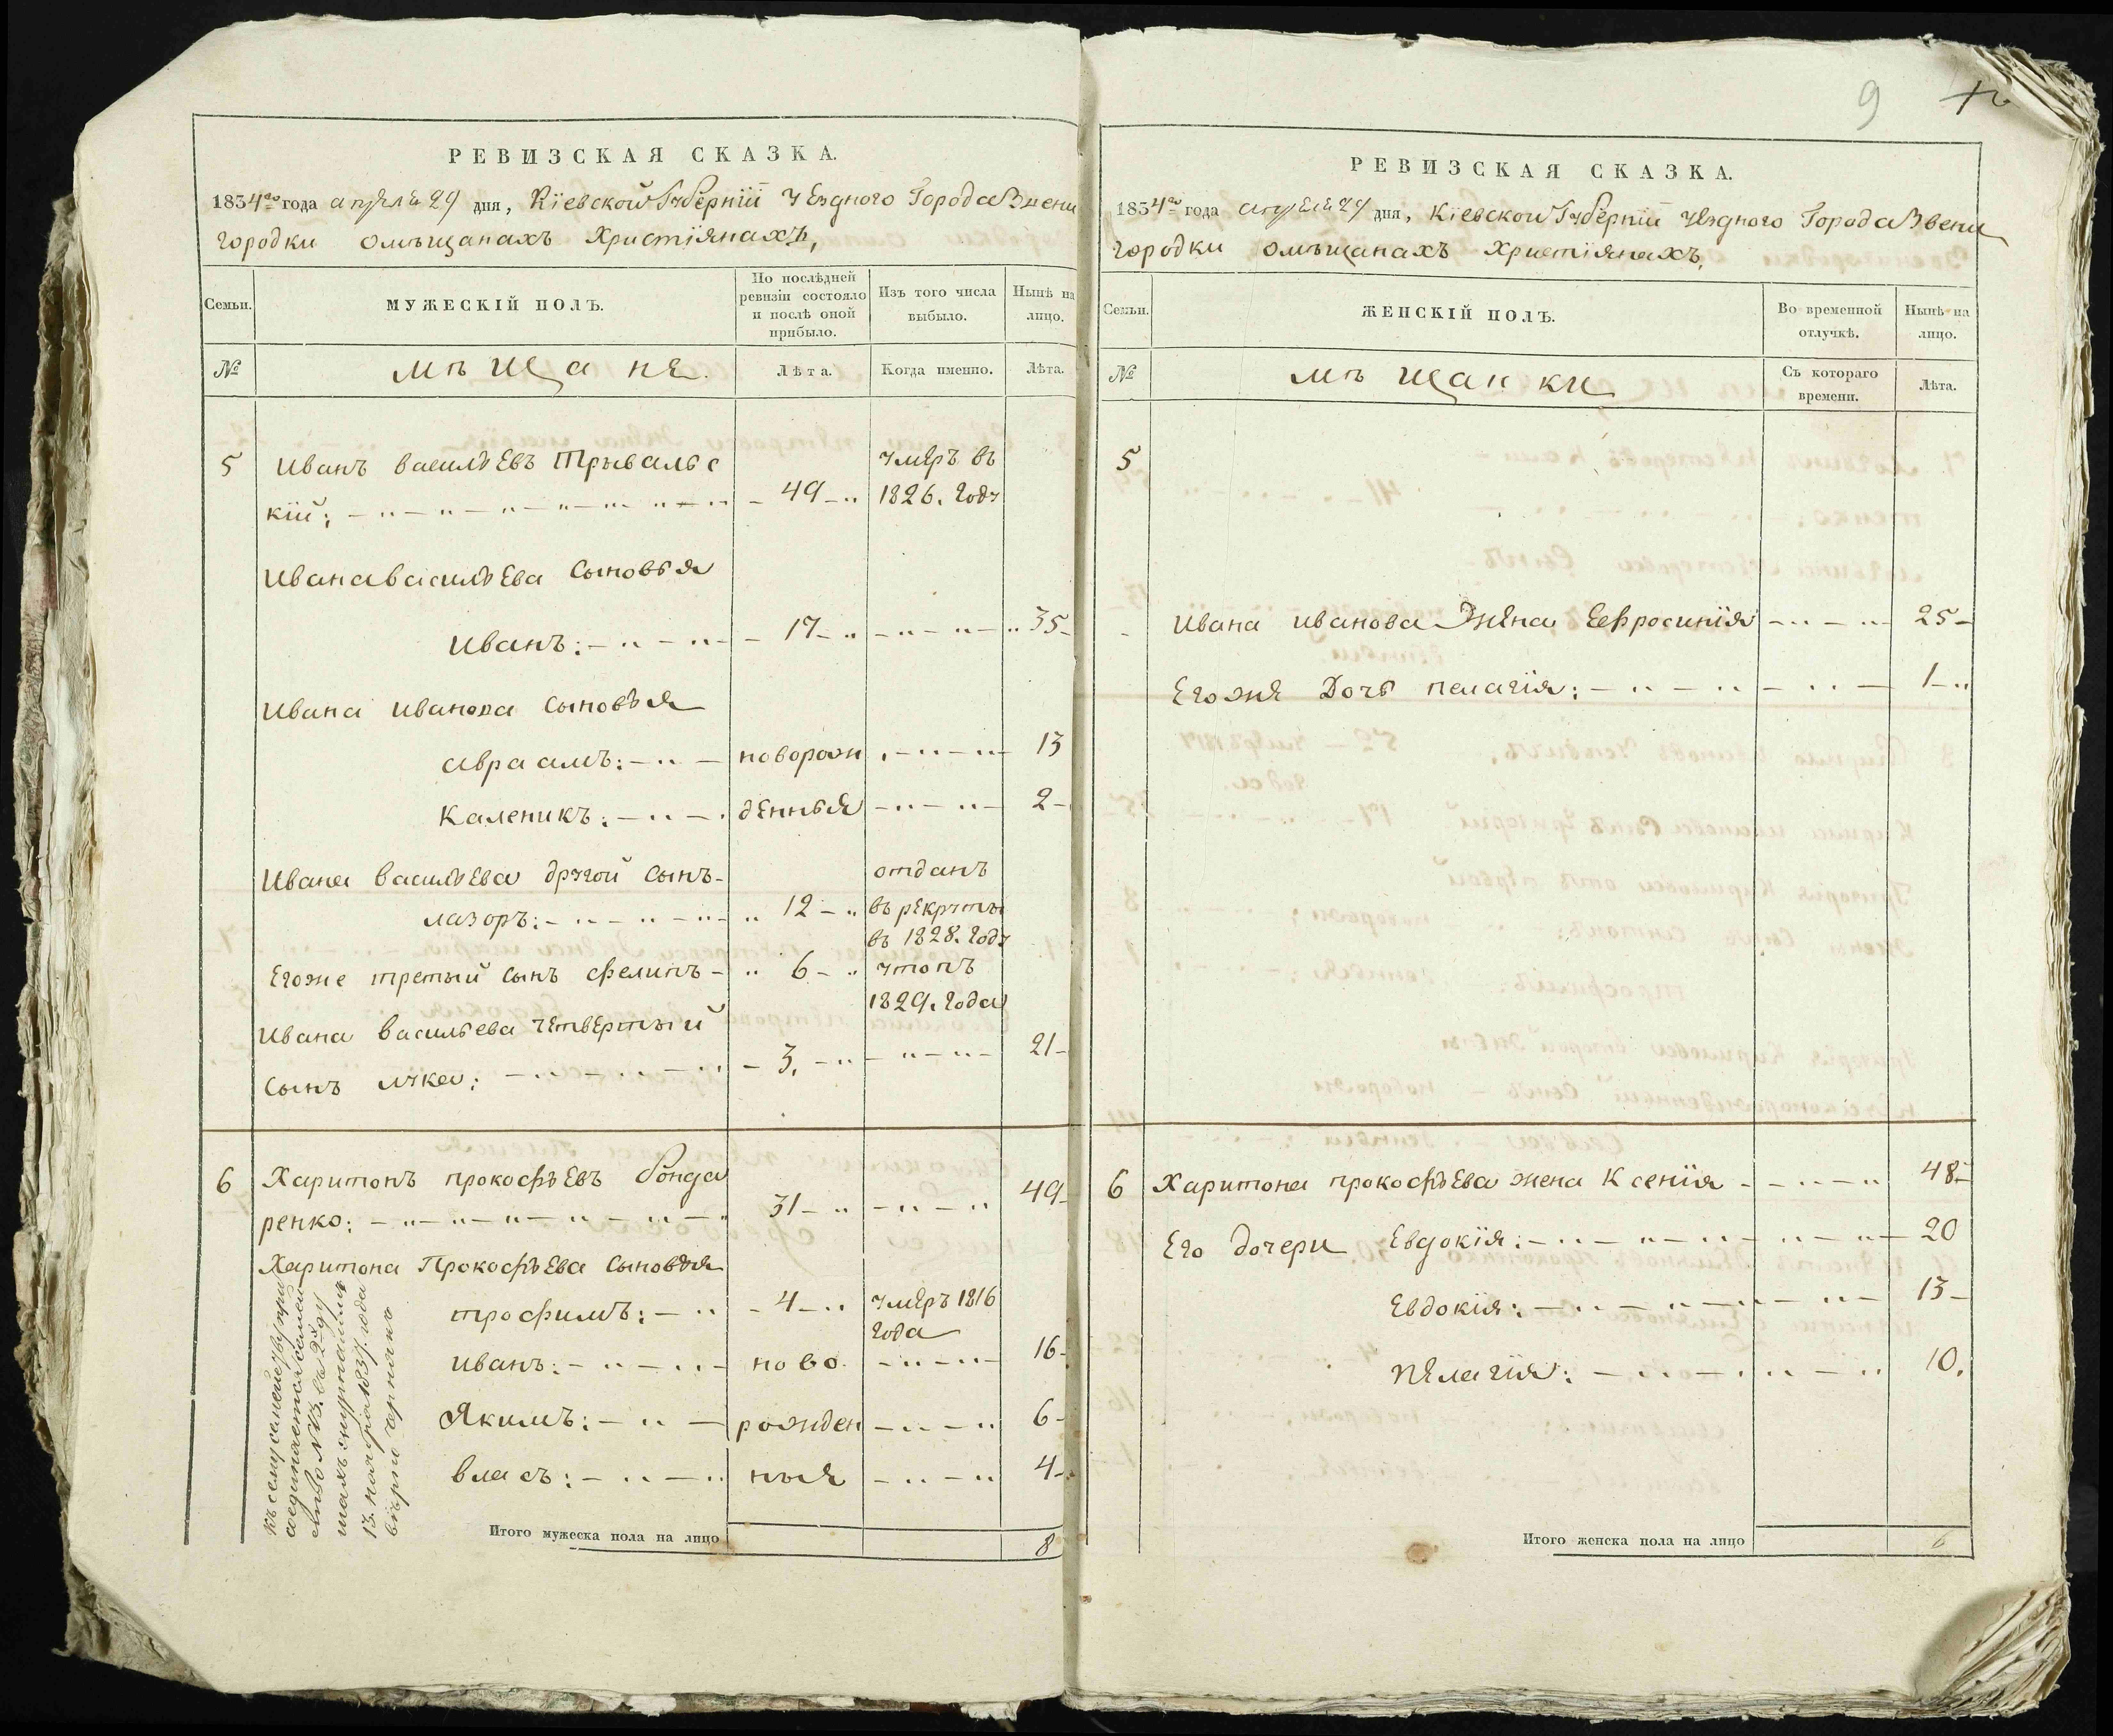 РЕВИЗСКАЯ СКАЗКА.
1834го года апреля 29 дня, Кіевской Губерніи уезднаго Города Звени
городки о мѣщанахъ Христіянахъ,
Семьи.
МУЖЕСКІЙ ПОЛЪ.
По послѣдней ревизіи состояло и послѣ оной прибыло.
Изъ того числа выбыло.
Нынѣ на лицо.
№
мѣщане.
Лѣта.
Когда именно.
Лѣта.
5 Иванъ васильевъ Трывальс умеръ въ
кій: 49 1826. году
Ивана васильева сыновья
Иванъ: 17 35
Ивана иванова сыновья
авраамъ: новорож 13
Каленикъ: денныя 2
Ивана васильева другой сынъ отданъ
лазоръ: 12 въ рекруты
въ 1828. году
Егоже третый сынъ филипъ 6 утопъ
1829. года
Ивана васильева четвертый
сынъ лука: 3. 21
6 Харитонъ прокофьевъ бонда
ренко: 31 49
Харитона Прокофьева сыновья
трофимъ: 4 умеръ 1816
года
иванъ: ново 16
Якимъ: рожден 6
власъ: ныя 4
къ сему семейству при
соединяется семей
ство №13. въ 2й ду
шахъ
13. ноября 1837. года
Итого мужеска пола на лицо 8
9
РЕВИЗСКАЯ СКАЗКА.
1834го года апреля 29 дня, Кіевской Губерніи уезднаго Города Звени
городки о мѣщанахъ Христіянахъ,
Семьи.
ЖЕНСКІЙ ПОЛЪ.
Во временной отлучкѣ.
Нынѣ на лицо.
№
мѣщанки
Съ котораго времени.
Лѣта.
5
Ивана иванова Жена Ефросинія 25
Егоже Дочь пелагія: 1
6 Харитона прокофьева жена Ксенія 48
Его дочери Евдокія: 20
Евдокія: 13
пелагія: 10.
Итого женска пола на лицо 6